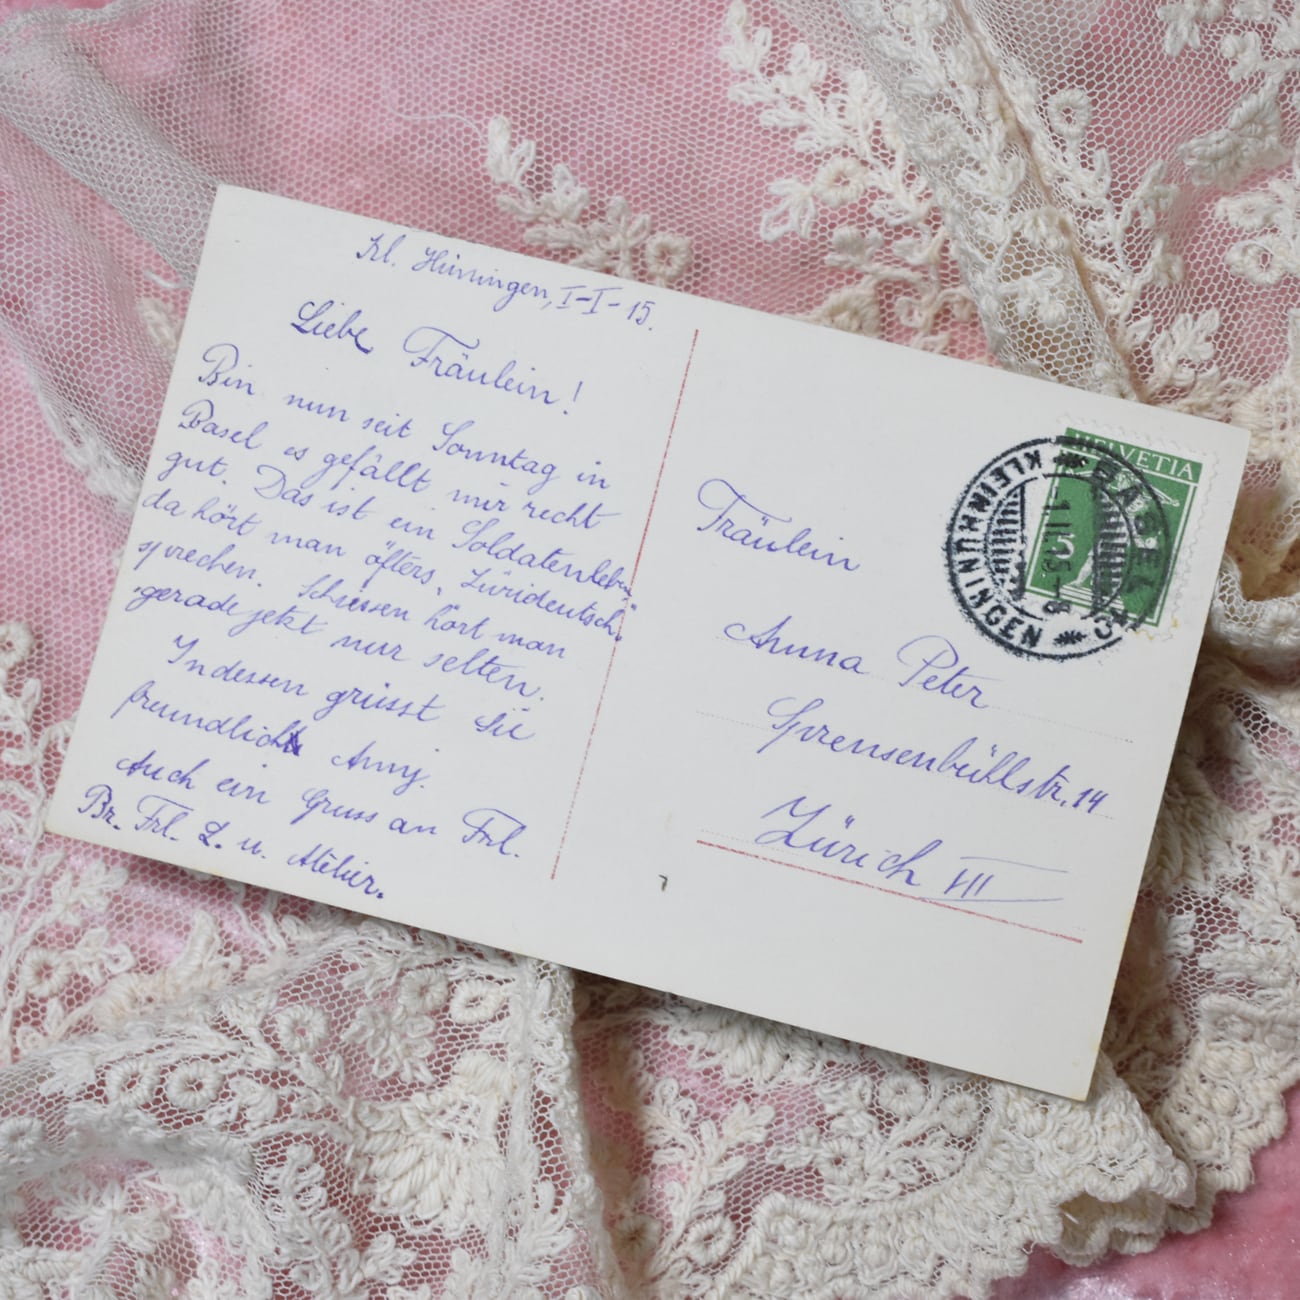 Kl. Hüningen, I-I-15.
Liebe Fräulein!
Bin nun seit Sonntag in
Basel es gefällt mir recht
gut. Das ist ein Soldatenleben
da hört man öfters „Zürideutsch“
sprechen. Schiessen hört man
gerade jetzt nur selten.
Indessen grüsst Sie
freundlich Anny.
Auch ein Gruss an Frl.
Br. Frl. L. u. Atelier.
Fräulein
Anna Peter
Sprensenbühlstr. 14
Zürich VII
HELVETIA
5
BASEL
KLEINHÜNINGEN